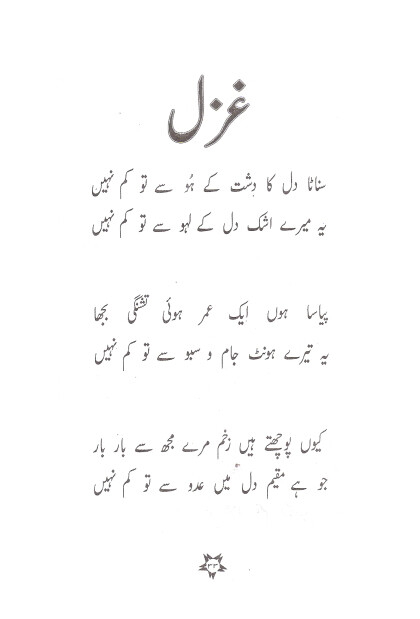 غزل
سناٹا دل کا دشت کے ہُو سے تو کم نہیں
یہ میرے اشک دل کے لہو سے تو کم نہیں
پیاسا ہوں ایک عمر ہوئی تشنگی بجھا
یہ تیرے ہونٹ جام و سبو سے تو کم نہیں
کیوں پوچھتے ہیں زخم مرے مجھ سے بار بار
جو ہے مقیم دل میں عدو سے تو کم نہیں
۳۳